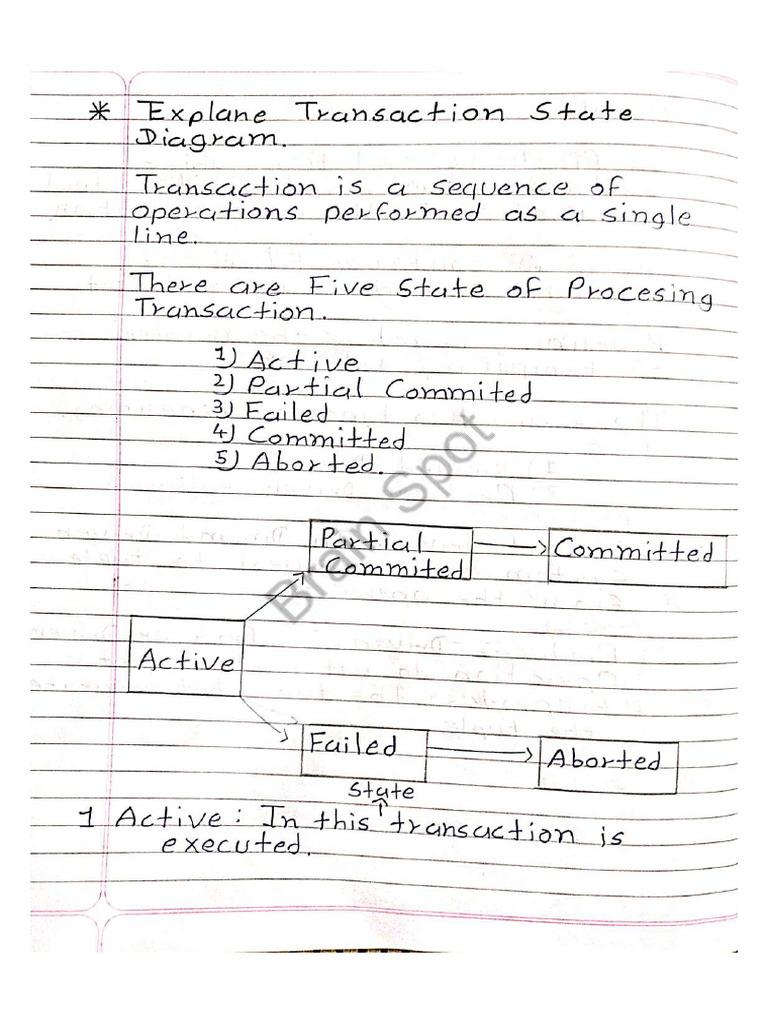 * Explane Transaction State
Diagram.
Transaction is a sequence of
operations performed as a single
line.
There are Five State of Procesing
Transaction.
1) Active
2) Partial Commited
3) Failed
4) Committed
5) Aborted.
Brain Spot
Partial
Commited
Committed
Active
Failed
Aborted
State
1 Active: In this ↑ transaction is
executed.